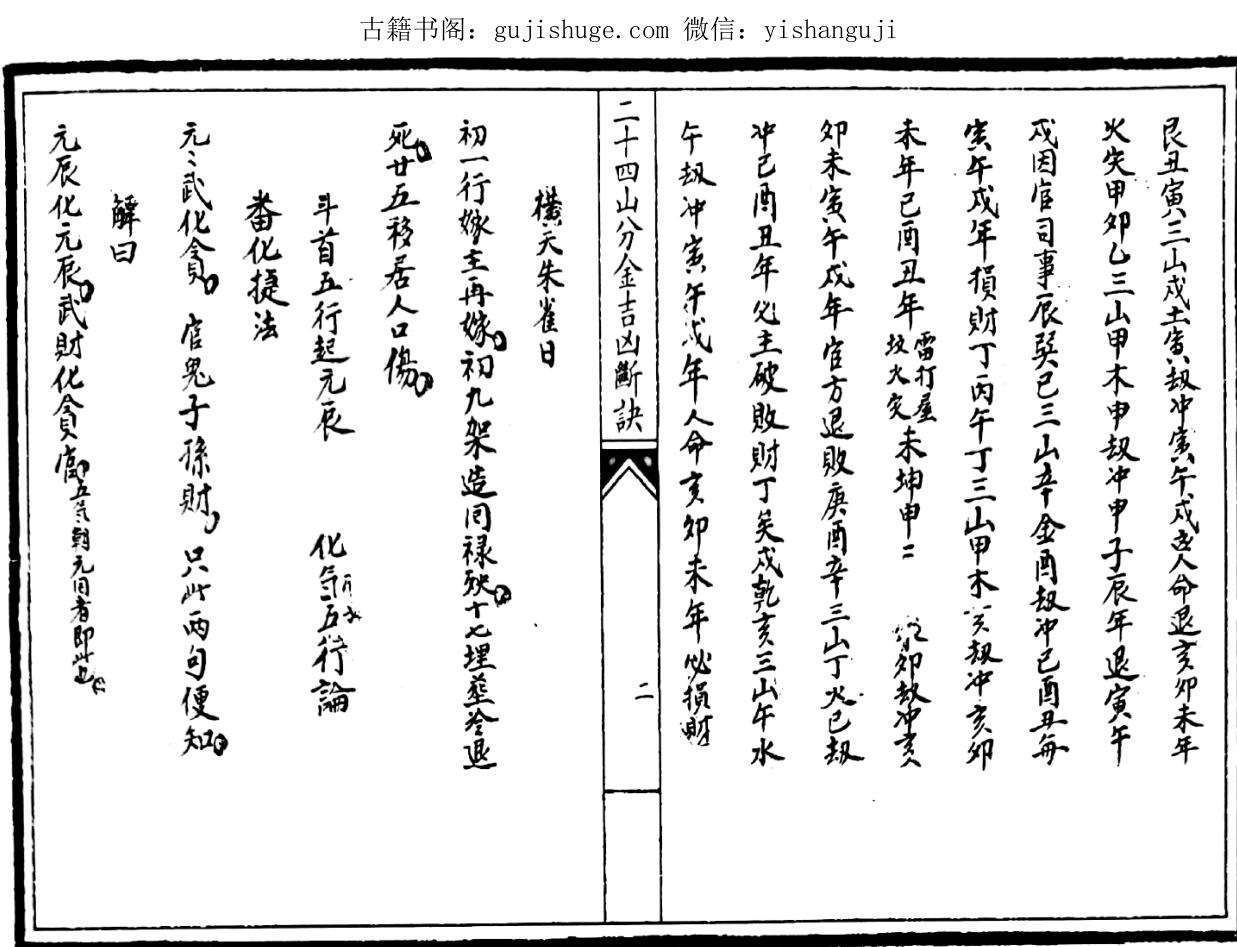 古籍书阁：gujishuge.com 微信：yishanguji
艮丑寅三山戍土寅劫冲寅午戍 人命退亥卯未年
火失甲卯乙三山甲木申劫冲申子辰年退寅午
戍因官司事辰巽巳三山辛金酉劫冲巳酉丑每
寅午戍年損財丁丙午丁三山甲木亥劫冲亥卯
未年巳酉丑年雷打屋坟火灾未坤申二 卯劫冲亥
卯未寅午戍年官方退敗庚酉辛三山丁火巳劫
冲巳酉丑年必主破敗財丁矣戍乾亥三山午水
午劫冲寅午戍年人命亥卯未年必損財
二十四山分金吉凶斷訣
二
橫天朱雀日
初一行嫁主再嫁初九架造囘禄殃十七埋塟冷退
死廿五移居人口傷
斗首五行起元辰 化氣五行論
番化捷法
元〻武化貪 官鬼子孫財 只此两句便知
解曰
元辰化元辰武財化貪官五氣朝元者即此也